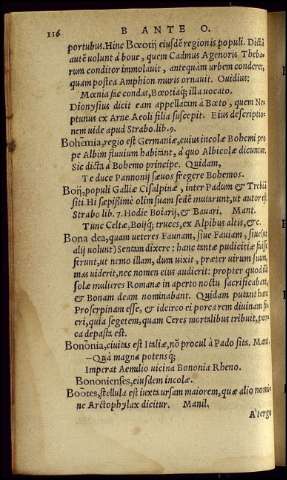 116 B ANTE O.
portubus. Hinc Bœotij eiusdē regionis populi. Dictā
autē volunt à boue, quem Cadmus Agenoris Theba-
rum conditor immolauit, antequàm urbem conderet,
quam postea Amphion muris ornauit. Ouidius:
Mœnia fac condas, Bœotiaq; illa vocato.
Dionysius dicit eam appellatam à Bœoto, quem Ne-
ptunus ex Arne Aeoli filia suscepit. Eius descriptio-
nem uide apud Strabo. lib. 9.
Bohëmia, regio est Germaniæ, cuius incolæ Bohemi pro
pe Albim fluuium habitant, à quo Albicolæ dicuntur.
Sic dicta à Bohemo principe. Quidam,
Te duce Pannonij sæuos fregere Bohemos.
Boij, populi Galliæ Cisalpinæ, inter Padum & Trebiā
siti. Hi sæpissimè olim suam sedē mutarunt, ut autor est
Strabo lib. 7. Hodie Boiarij, & Bauari. Mant.
Tunc Celtæ, Boijq; truces, ex Alpibus altis, &c.
Bona dea, quam veteres Faunam, siue Fatuam, siue (ut
alij uolunt) Sentam dixere: hanc tantæ pudicitiæ fuisse
ferunt, ut nemo illam, dum vixit, præter uirum suum,
mas uiderit, nec nomen eius audierit: propter quod illi
solæ mulieres Romanæ in aperto noctu sacrificabant,
& Bonam deam nominabant. Quidam putant hanc
Proserpinam esse, & idcirco ei porca rem diuinam fi-
eri, quia segetem, quam Ceres mortalibus tribuit, por-
ca depasta est.
Bonōnia, ciuitas est Italiæ, nō procul à Pado sita. Mart.
—Quā magna potensq;
Imperat Aemilio uicina Bononia Rheno.
Bononienses, eiusdem incolæ.
Boōtes, stellula est iuxta ursam maiorem, quæ alio nomi-
ne Arctophylax dicitur. Manil.
A' tergo